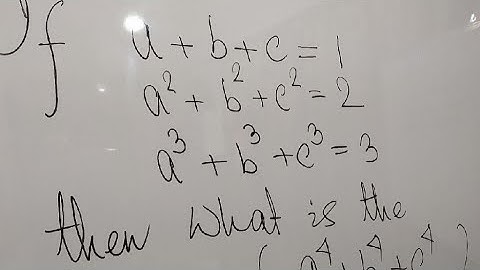 If a + b + c = 1
a² + b² + c² = 2
a³ + b³ + c³ = 3
then what is the
( a⁴ + b⁴ + c⁴ )